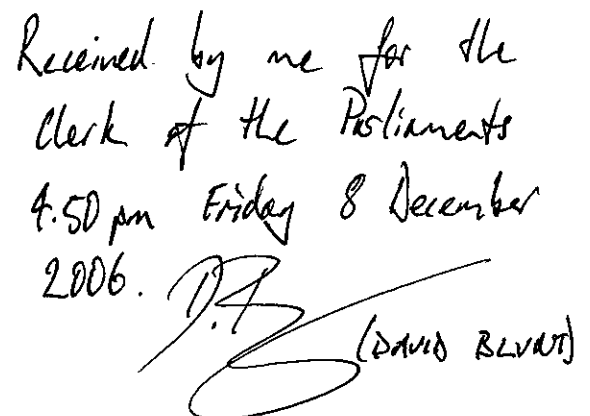 Received by me for the
Clerk of the Parliaments
4.50 pm Friday 8 December
2006. D.B
(DAVID BLUNT)